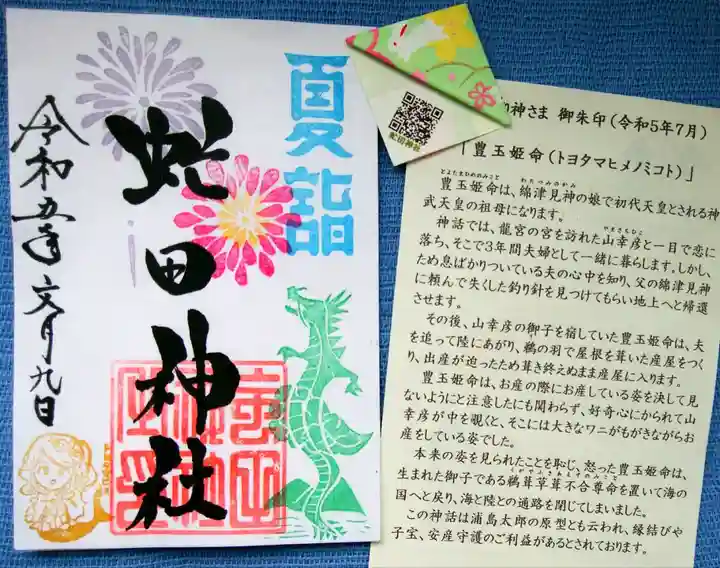 夏詣
虻田神社
令和五年文月九日
虻田神社
神さま 御朱印(令和5年7月)
「豊玉姫命(トヨタマヒメノミコト)」
豊玉姫命は、綿津見神の娘で初代天皇とされる神
武天皇の祖母になります。
神話では、龍宮の宮を訪れた山幸彦と一目で恋に
落ち、そこで3年間夫婦として一緒に暮らします。しかし、
ため息ばかりついている夫の心中を知り、父の綿津見神
に頼んで失くした釣り針を見つけてもらい地上へと帰還
させます。
その後、山幸彦の御子を宿していた豊玉姫命は、夫
を追って陸にあがり、鵜の羽で屋根を葺いた産屋をつく
り、出産が迫ったため葺き終えぬまま産屋に入ります。
豊玉姫命は、お産の際にお産している姿を決して見
ないようにと注意したにも関わらず、好奇心にかられて山
幸彦が中を覗くと、そこには大きなワニがもがきながらお
産をしている姿でした。
本来の姿を見られたことを恥じ、怒った豊玉姫命は、
生まれた御子である鵜葺草葺不合尊命を置いて海の
国へと戻り、海と陸との通路を閉じてしまいました。
この神話は浦島太郎の原型とも云われ、縁結びや
子宝、安産守護のご利益があるとされております。